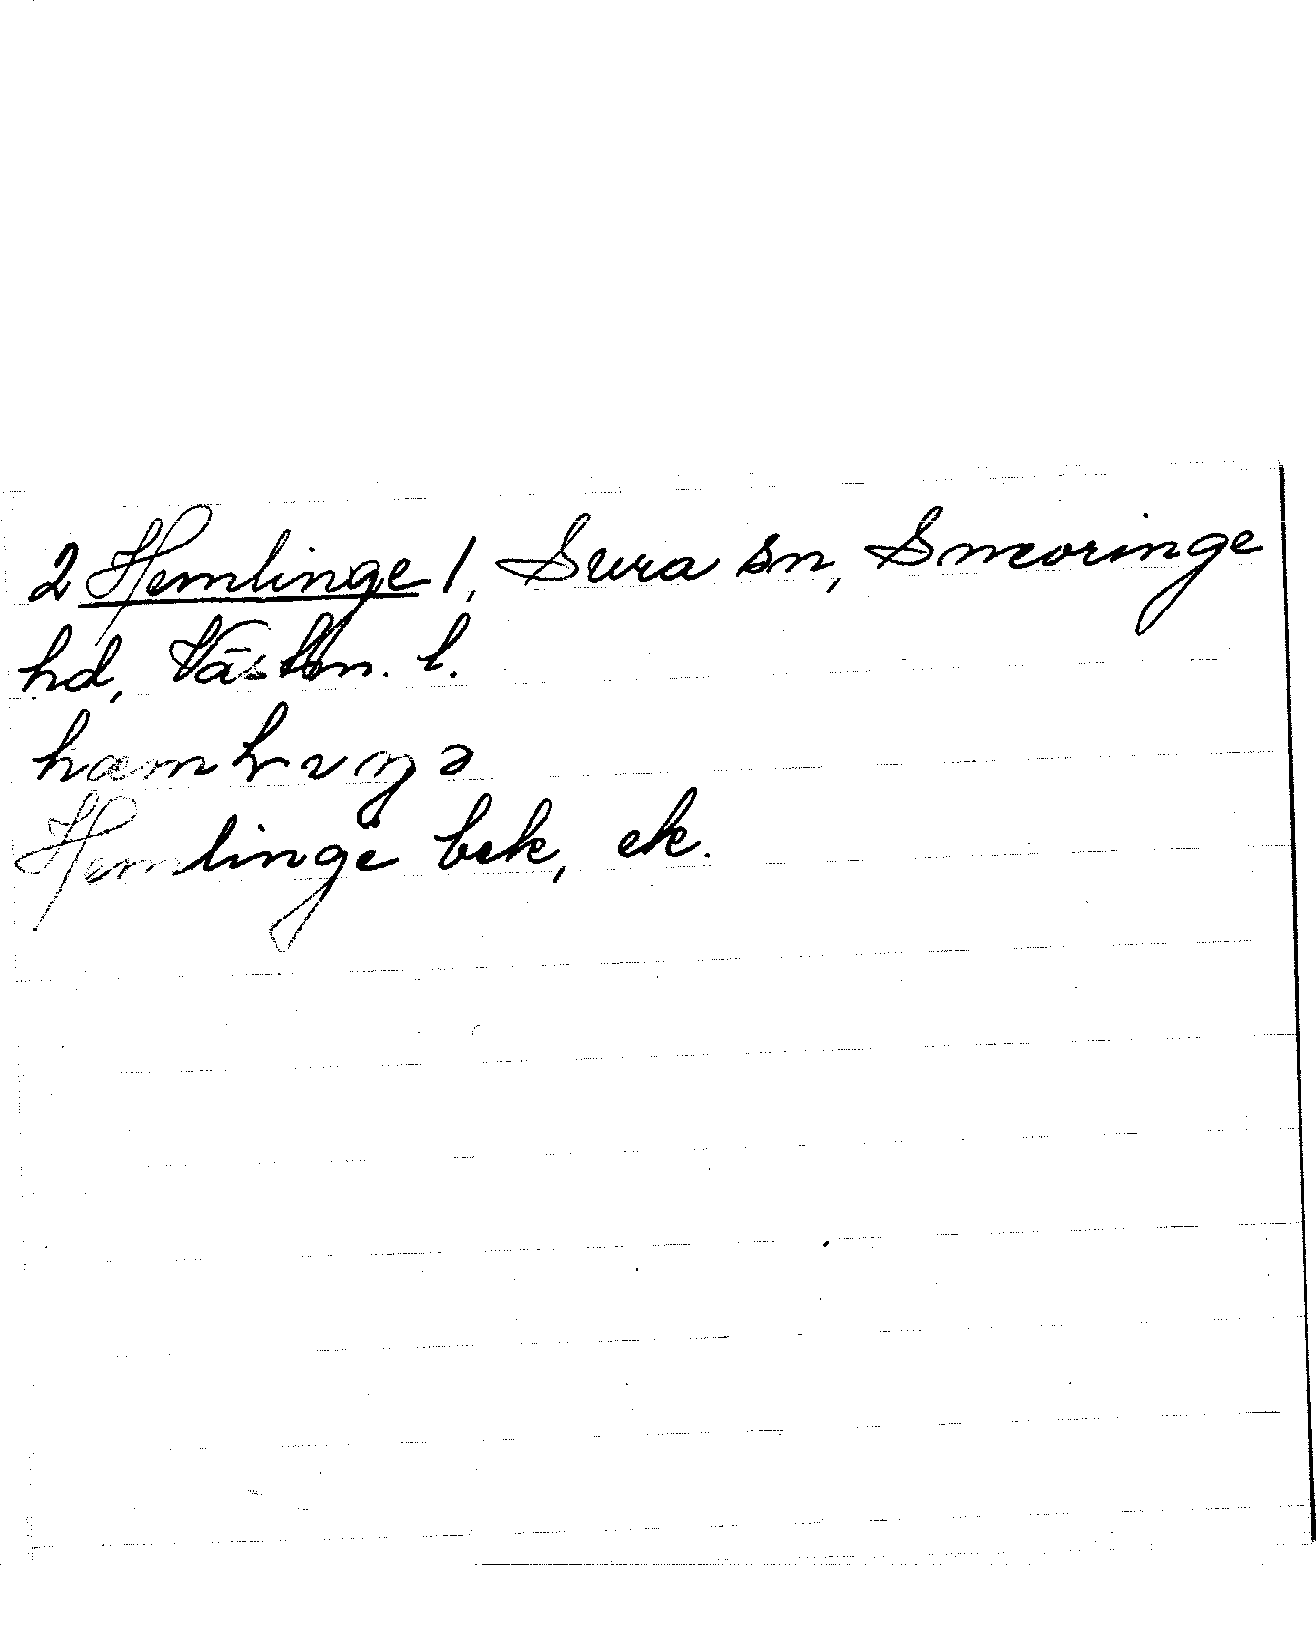 2 Hemlinge 1, Sura sn, Snevringe
hd, Västm. l.
Hemlinge bek, ek.